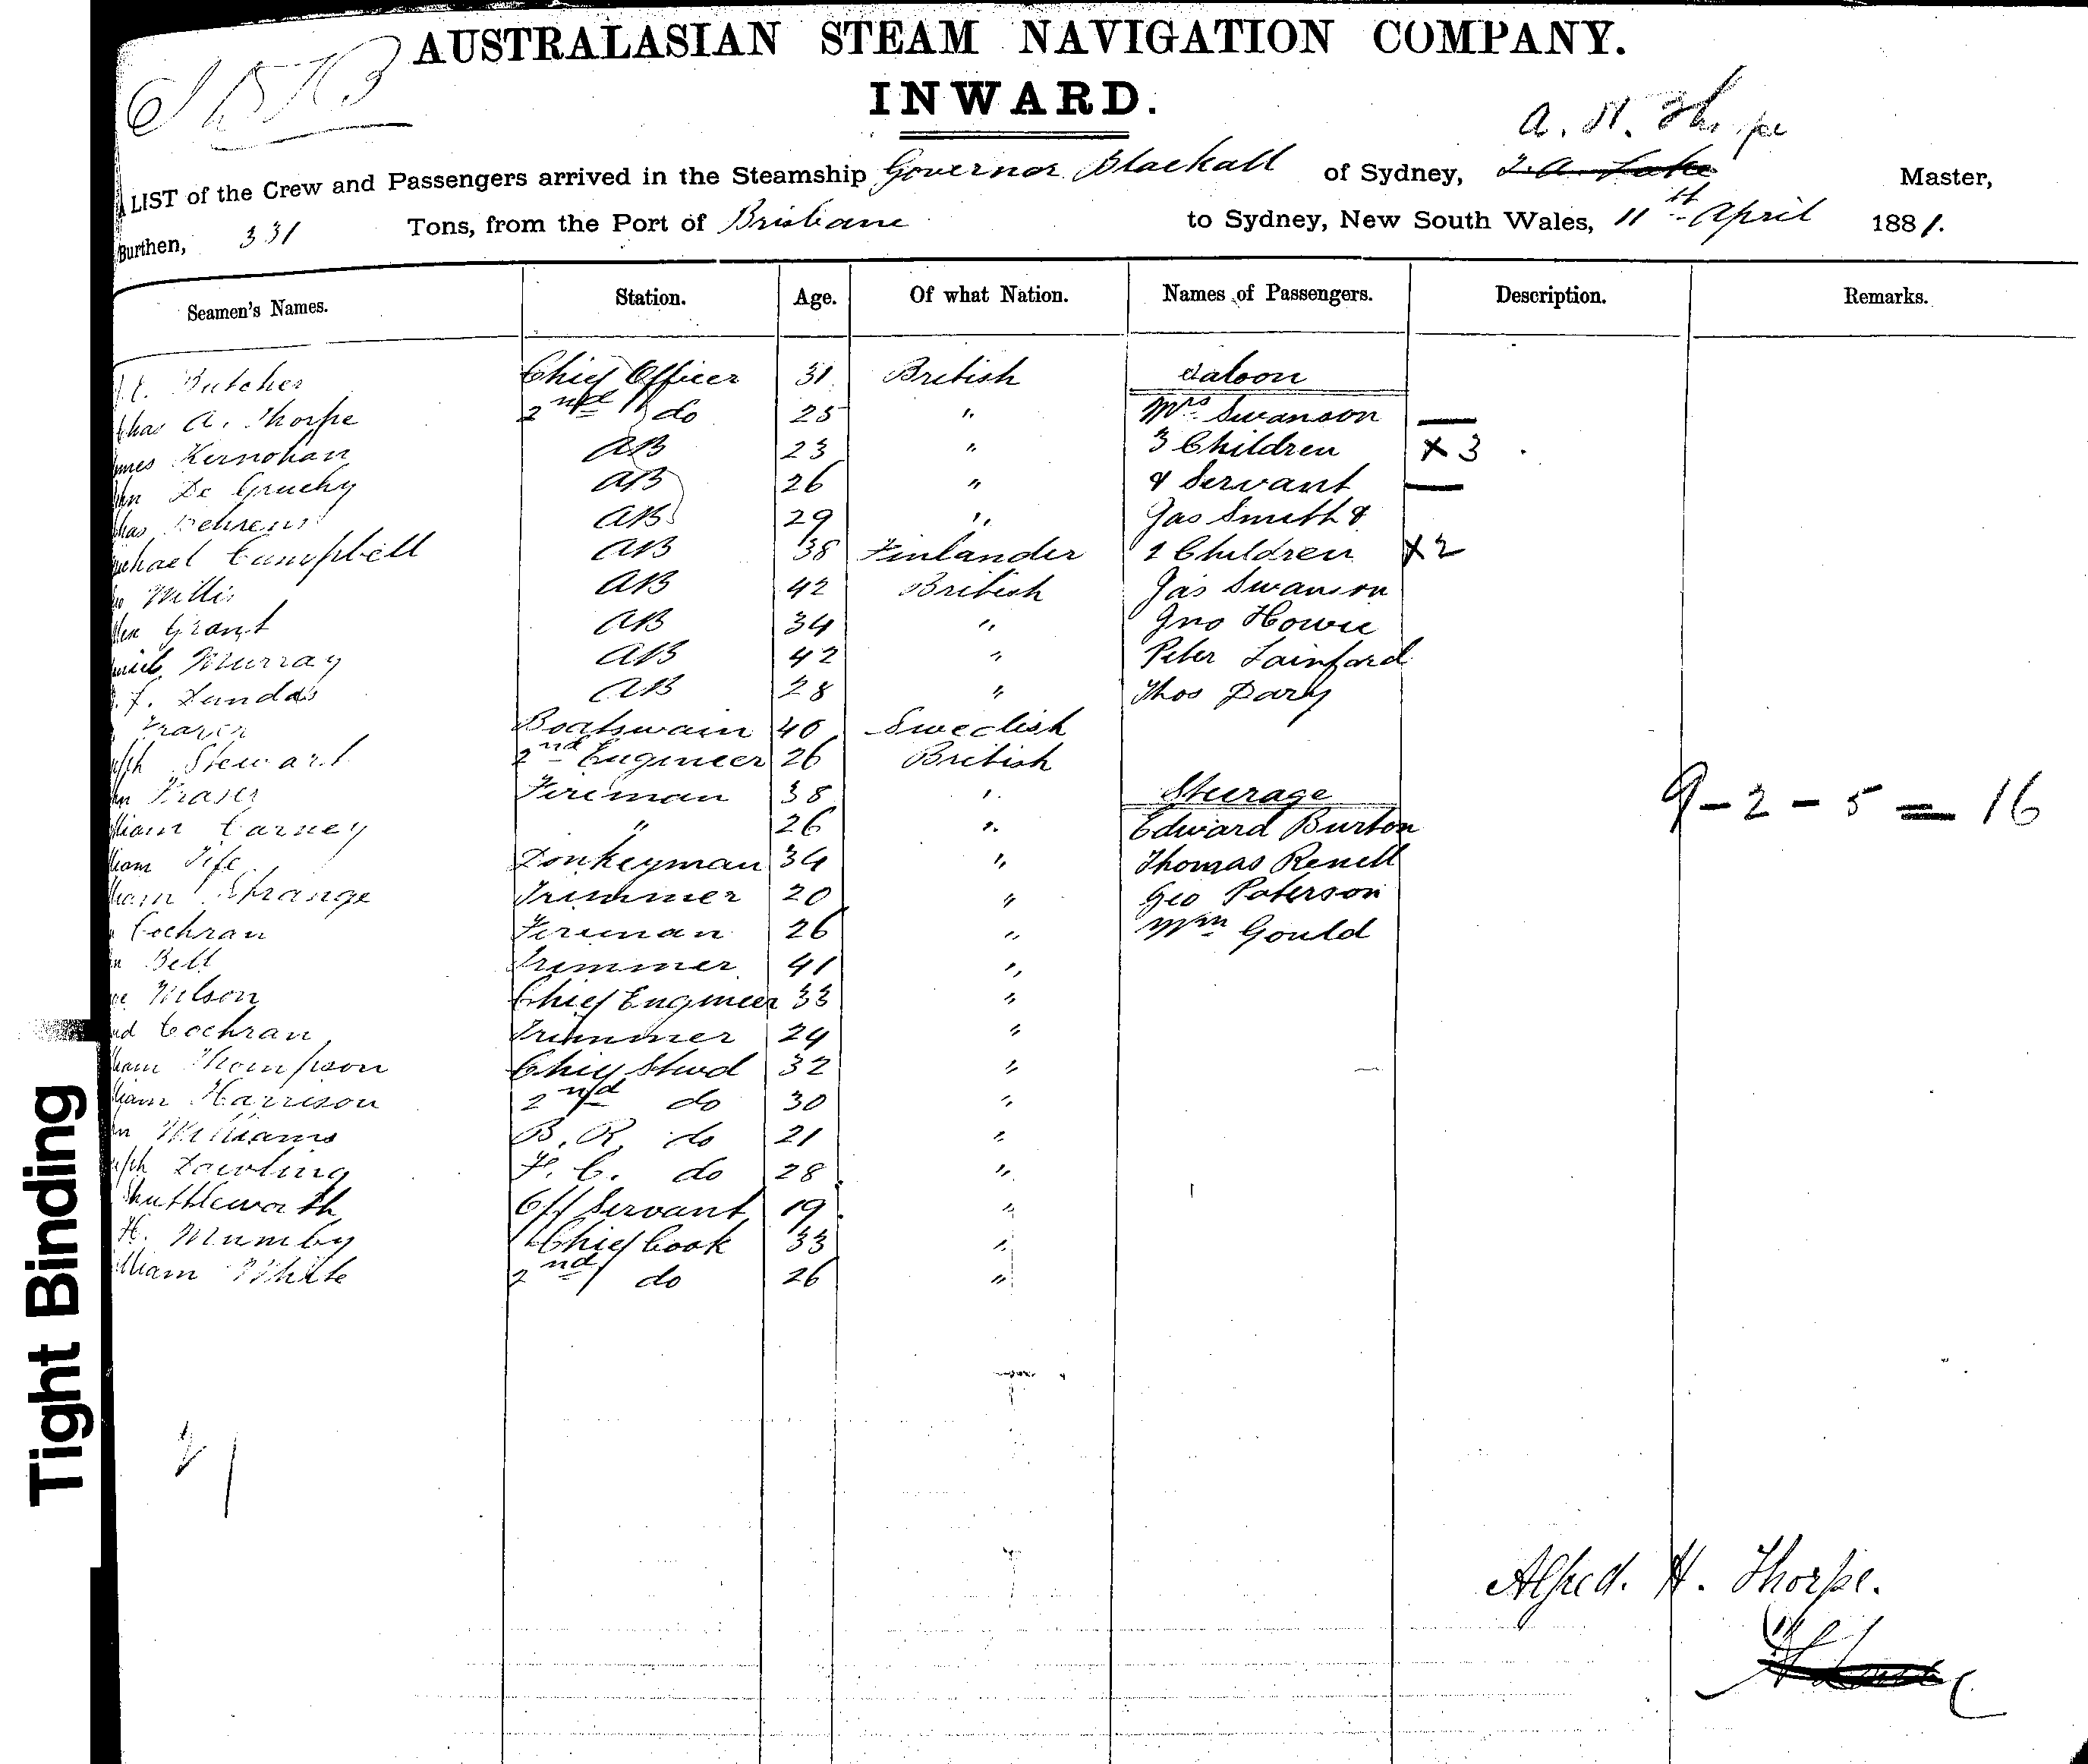 AUSTRALASIAN STEAM NAVIGATION COMPANY.
INWARD.
A. H. Thorpe
LIST of the Crew and Passengers arrived in the Steamship Governor Blackall of Sydney, Master,
Burthen, 331 Tons, from the Port of Brisbane to Sydney, New South Wales, 11th April 1881.
Seamen's Names. Station. Age. Of what Nation. Names of Passengers. Description. Remarks.
Butcher Chief Officer 31 British Saloon
Chas A. Thorpe 2nd do 25 " Mrs Swanson
Kernohan AB 23 " 3 Children X 3
De Gruchy AB 26 " & Servant
Behrens AB 29 " Jas Smith &
Campbell AB 38 Finlander 2 Children X 2
Willis AB 42 British Jas Swanson
Grant AB 34 " Jno Howie
Murray AB 42 " Peter Lainford
Dundas AB 28 " Thos Dary
Boatswain 40 Swedish
Stewart 2nd Engineer 26 British
Fraser Fireman 38 " Steerage
Carney " 26 " Edward Burton
Fife Donkeyman 34 " Thomas Renell
Strange Trimmer 20 " Geo Paterson
Cochran Fireman 26 " Wm Gould
9 - 2 - 5 = 16
Bell Trimmer 41 "
Wilson Chief Engineer 33 "
Cochran Trimmer 24 "
Thompson Chief Stwd 32 "
Harrison 2nd do 30 "
Williams B. R. do 21 "
Dowling F. C. do 28 "
Shuttleworth Off Servant 19 "
H. Mumby Chief Cook 33 "
William White 2nd do 26 "
Tight Binding
Alfred. H. Thorpe.